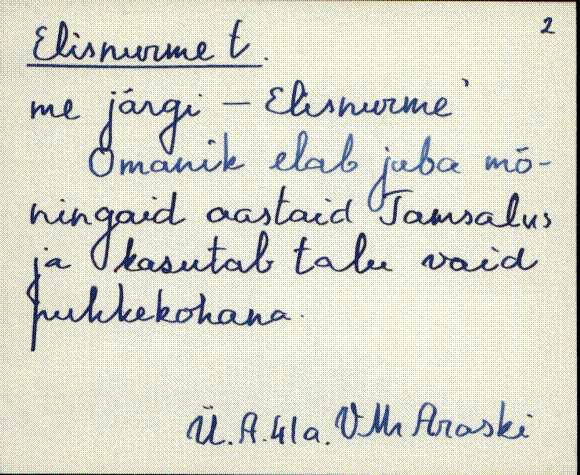 2
Elisnurme t.
me järgi – Elisnurme'
Omanik elab juba mõ-
ningaid aastaid Tamsalus
ja kasutab talu vaid
puhkekohana.
Ü. A. 41a. V. Araski